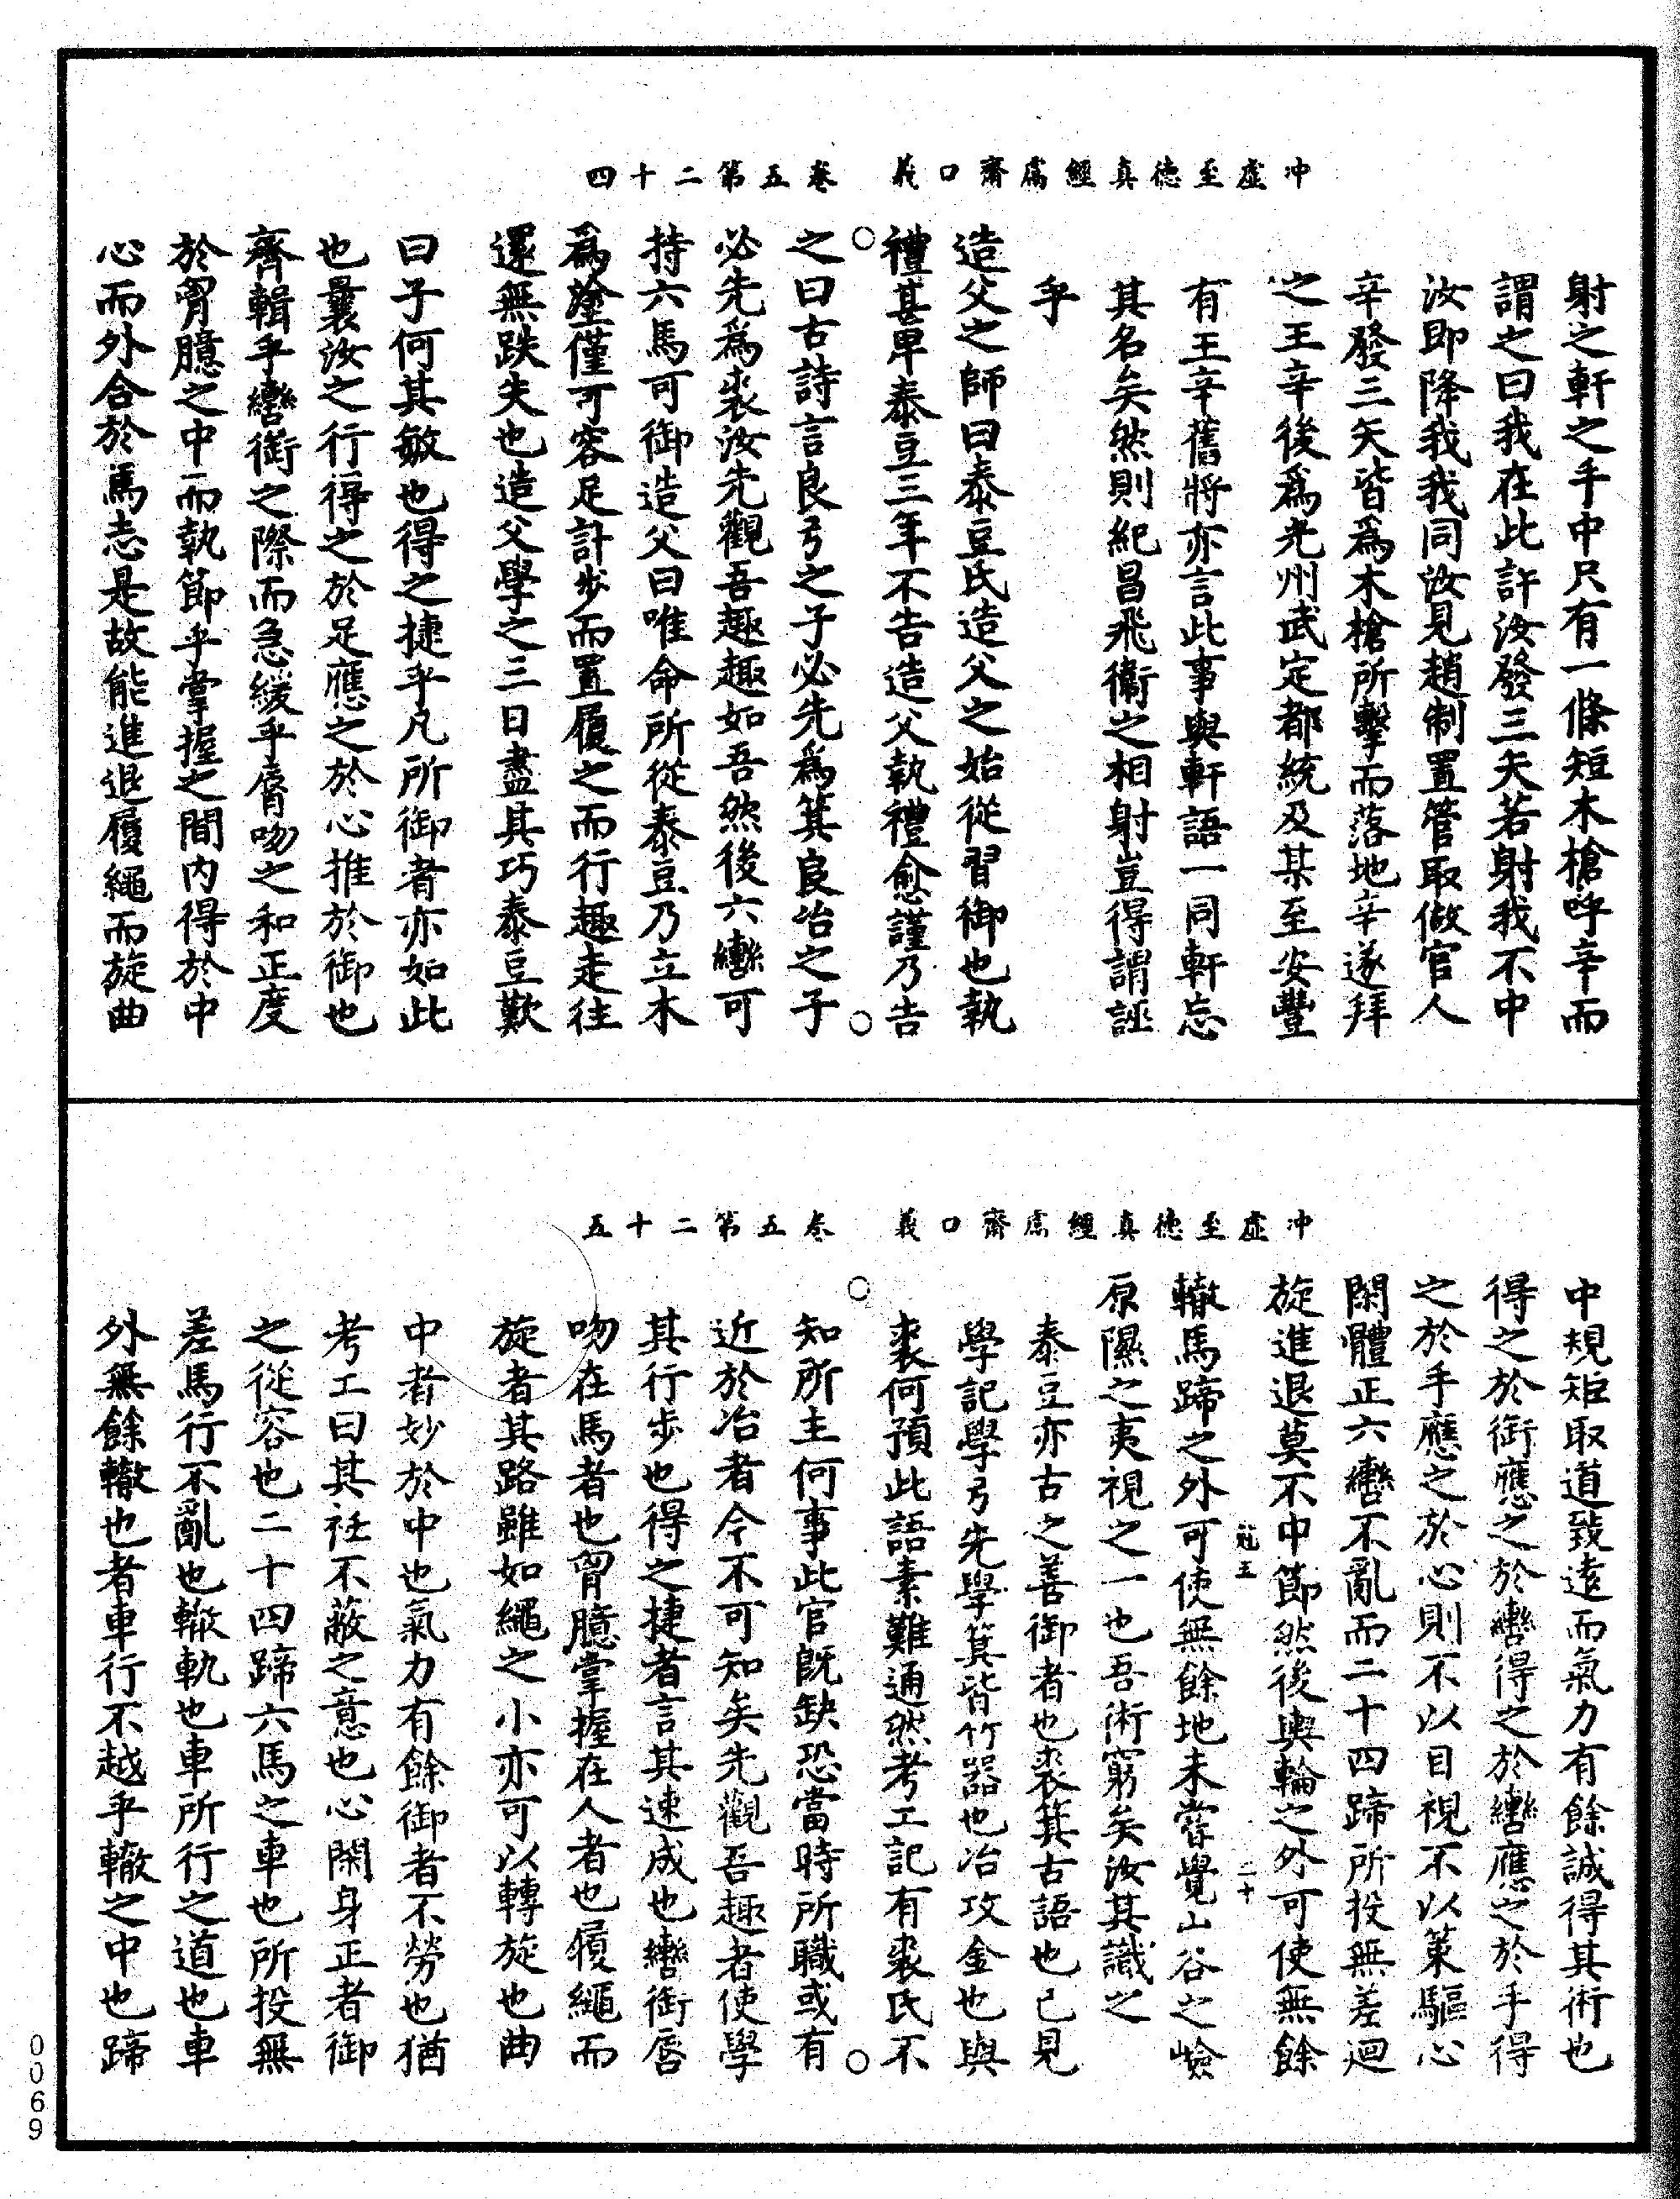 冲虛至德真經鬳齋口義　卷五第二十四
射之軒之手中只有一條短木槍呼辛而
謂之曰我在此許汝發三矢若射我不中
汝即降我我同汝見趙制置管取做官人
辛發三矢皆爲木槍所擊而落地辛遂拜
之王辛後爲光州武定都統及某至安豐
有王辛舊將亦言此事與軒語一同軒忘
其名矣然則紀昌飛衞之相射豈得謂誣
乎
造父之師曰泰豆氏造父之始從習御也執
禮甚卑泰豆三年不告造父執禮愈謹乃告
之曰古詩言良弓之子必先爲箕良冶之子
必先爲裘汝先觀吾趣趣如吾然後六轡可
持六馬可御造父曰唯命所從泰豆乃立木
爲塗僅可容足計步而置履之而行趣走往
還無跌失也造父學之三日盡其巧泰豆歎
曰子何其敏也得之捷乎凡所御者亦如此
也曩汝之行得之於足應之於心推於御也
齊輯乎轡銜之際而急緩乎脣吻之和正度
於胷臆之中而執節乎掌握之間内得於中
心而外合於馬志是故能進退履繩而旋曲
冲虛至德真經鬳齋口義　卷五第二十五
中規矩取道致遠而氣力有餘誠得其術也
得之於銜應之於轡得之於轡應之於手得
之於手應之於心則不以目視不以策驅心
閑體正六轡不亂而二十四蹄所投無差迴
旋進退莫不中節然後輿輪之外可使無餘
轍馬蹄之外可使無餘地未嘗覺山谷之嶮
原隰之夷視之一也吾術窮矣汝其識之
泰豆亦古之善御者也裘箕古語也已見
學記學弓先學箕皆竹器也冶攻金也與
裘何預此語素難通然考工記有裘氏不
知所主何事此官既缺恐當時所職或有
近於冶者今不可知矣先觀吾趣者使學
其行步也得之捷者言其速成也轡銜唇
吻在馬者也胷臆掌握在人者也履繩而
旋者其路雖如繩之小亦可以轉旋也曲
中者妙於中也氣力有餘御者不勞也猶
考工曰其衽不蔽之意也心閑身正者御
之從容也二十四蹄六馬之車也所投無
差馬行不亂也轍軌也車所行之道也車
外無餘轍也者車行不越乎轍之中也蹄
二十
0069